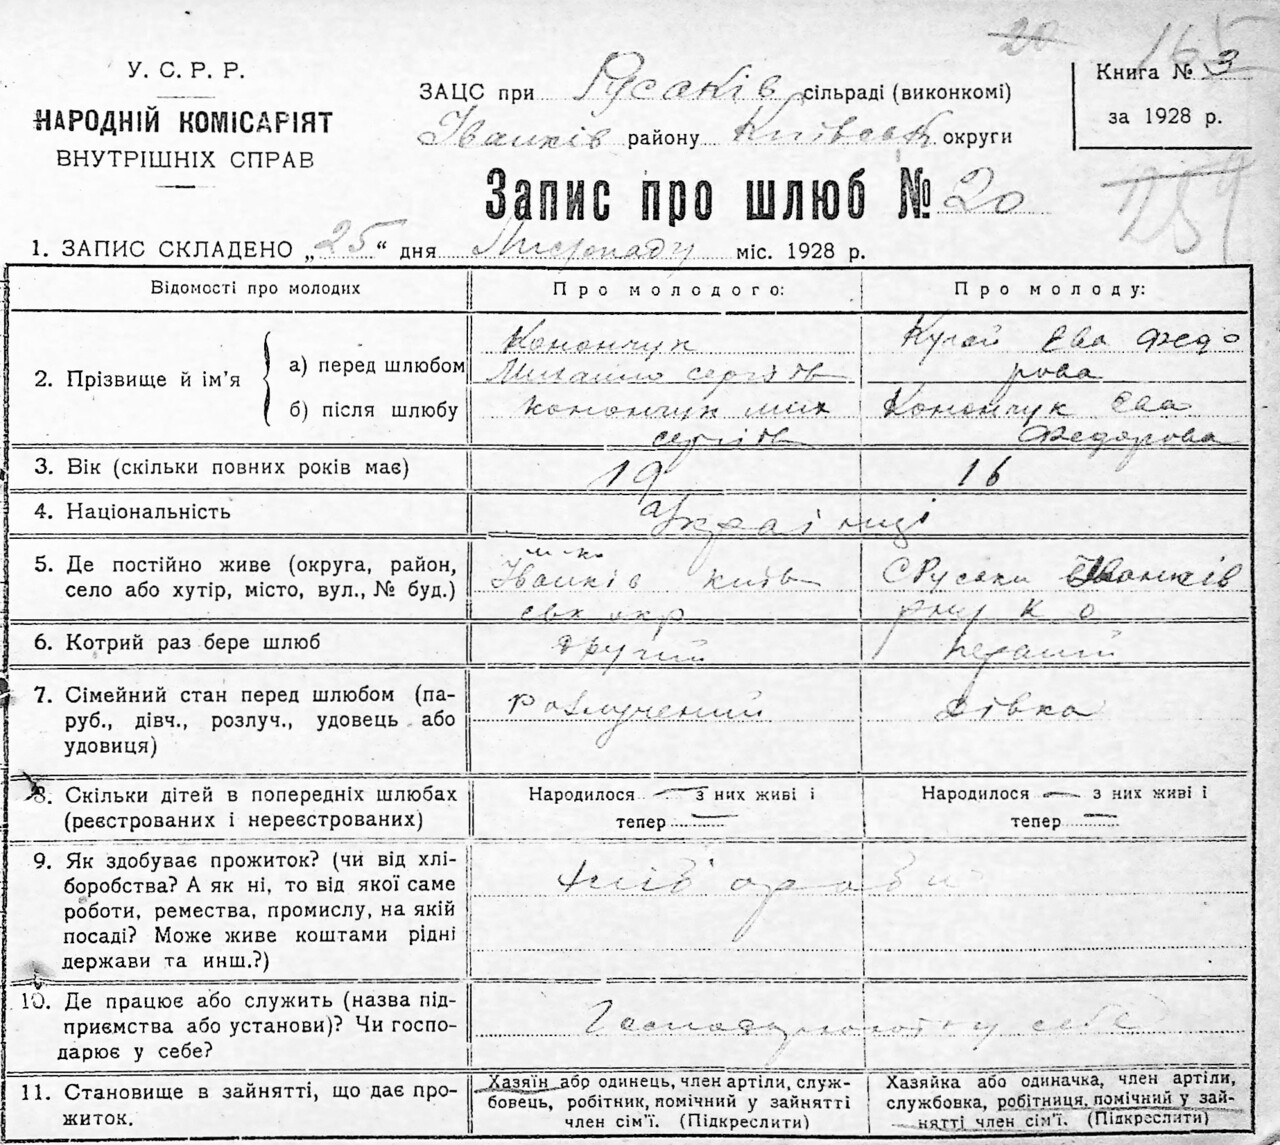 20 165
У. С. Р. Р.
НАРОДНІЙ КОМІСАРІЯТ
ВНУТРІШНІХ СПРАВ
ЗАЦС при Русаків сільраді (виконкомі)
Іванків району Київськ округи
Книга № 3
за 1928 р.
Запис про шлюб № 20
1. ЗАПИС СКЛАДЕНО „25“ дня Листопаду міс. 1928 р.
Відомості про молодих
Про молодого:
Про молоду:
2. Прізвище й ім’я
а) перед шлюбом
Конончук
Михайло сергіїв
Кугай Ева Федо
рова
б) після шлюбу
Конончук мих
сергіїв
Конончук Ева
Федорова
3. Вік (скільки повних років має)
19
16
4. Національність
Українці
5. Де постійно живе (округа, район,
село або хутір, місто, вул., № буд.)
м-ко
Іванків київ
ськ окр
с Русаки Іванків
рну К о
6. Котрий раз бере шлюб
другий
первий
7. Сімейний стан перед шлюбом (па-
руб., дівч., розлуч., удовець або
удовиця)
розлучений
дівка
8. Скільки дітей в попередніх шлюбах
(реєстрованих і нереєстрованих)
Народилося — з них живі і
тепер —
Народилося — з них живі і
тепер —
9. Як здобуває прожиток? (чи від хлі-
боробства? А як ні, то від якої саме
роботи, ремества, промислу, на якій
посаді? Може живе коштами рідні
держави та инш.?)
10. Де працює або служить (назва під-
приємства або установи)? Чи госпо-
дарює у себе?
Господарюють у себе
11. Становище в зайнятті, що дає про-
житок.
Хазяїн або одинець, член артіли, служ-
бовець, робітник, помічний у зайнятті
член сім’ї. (Підкреслити)
Хазяйка або одиначка, член артіли,
службовка, робітниця, помічний у зай-
нятті член сім’ї. (Підкреслити)